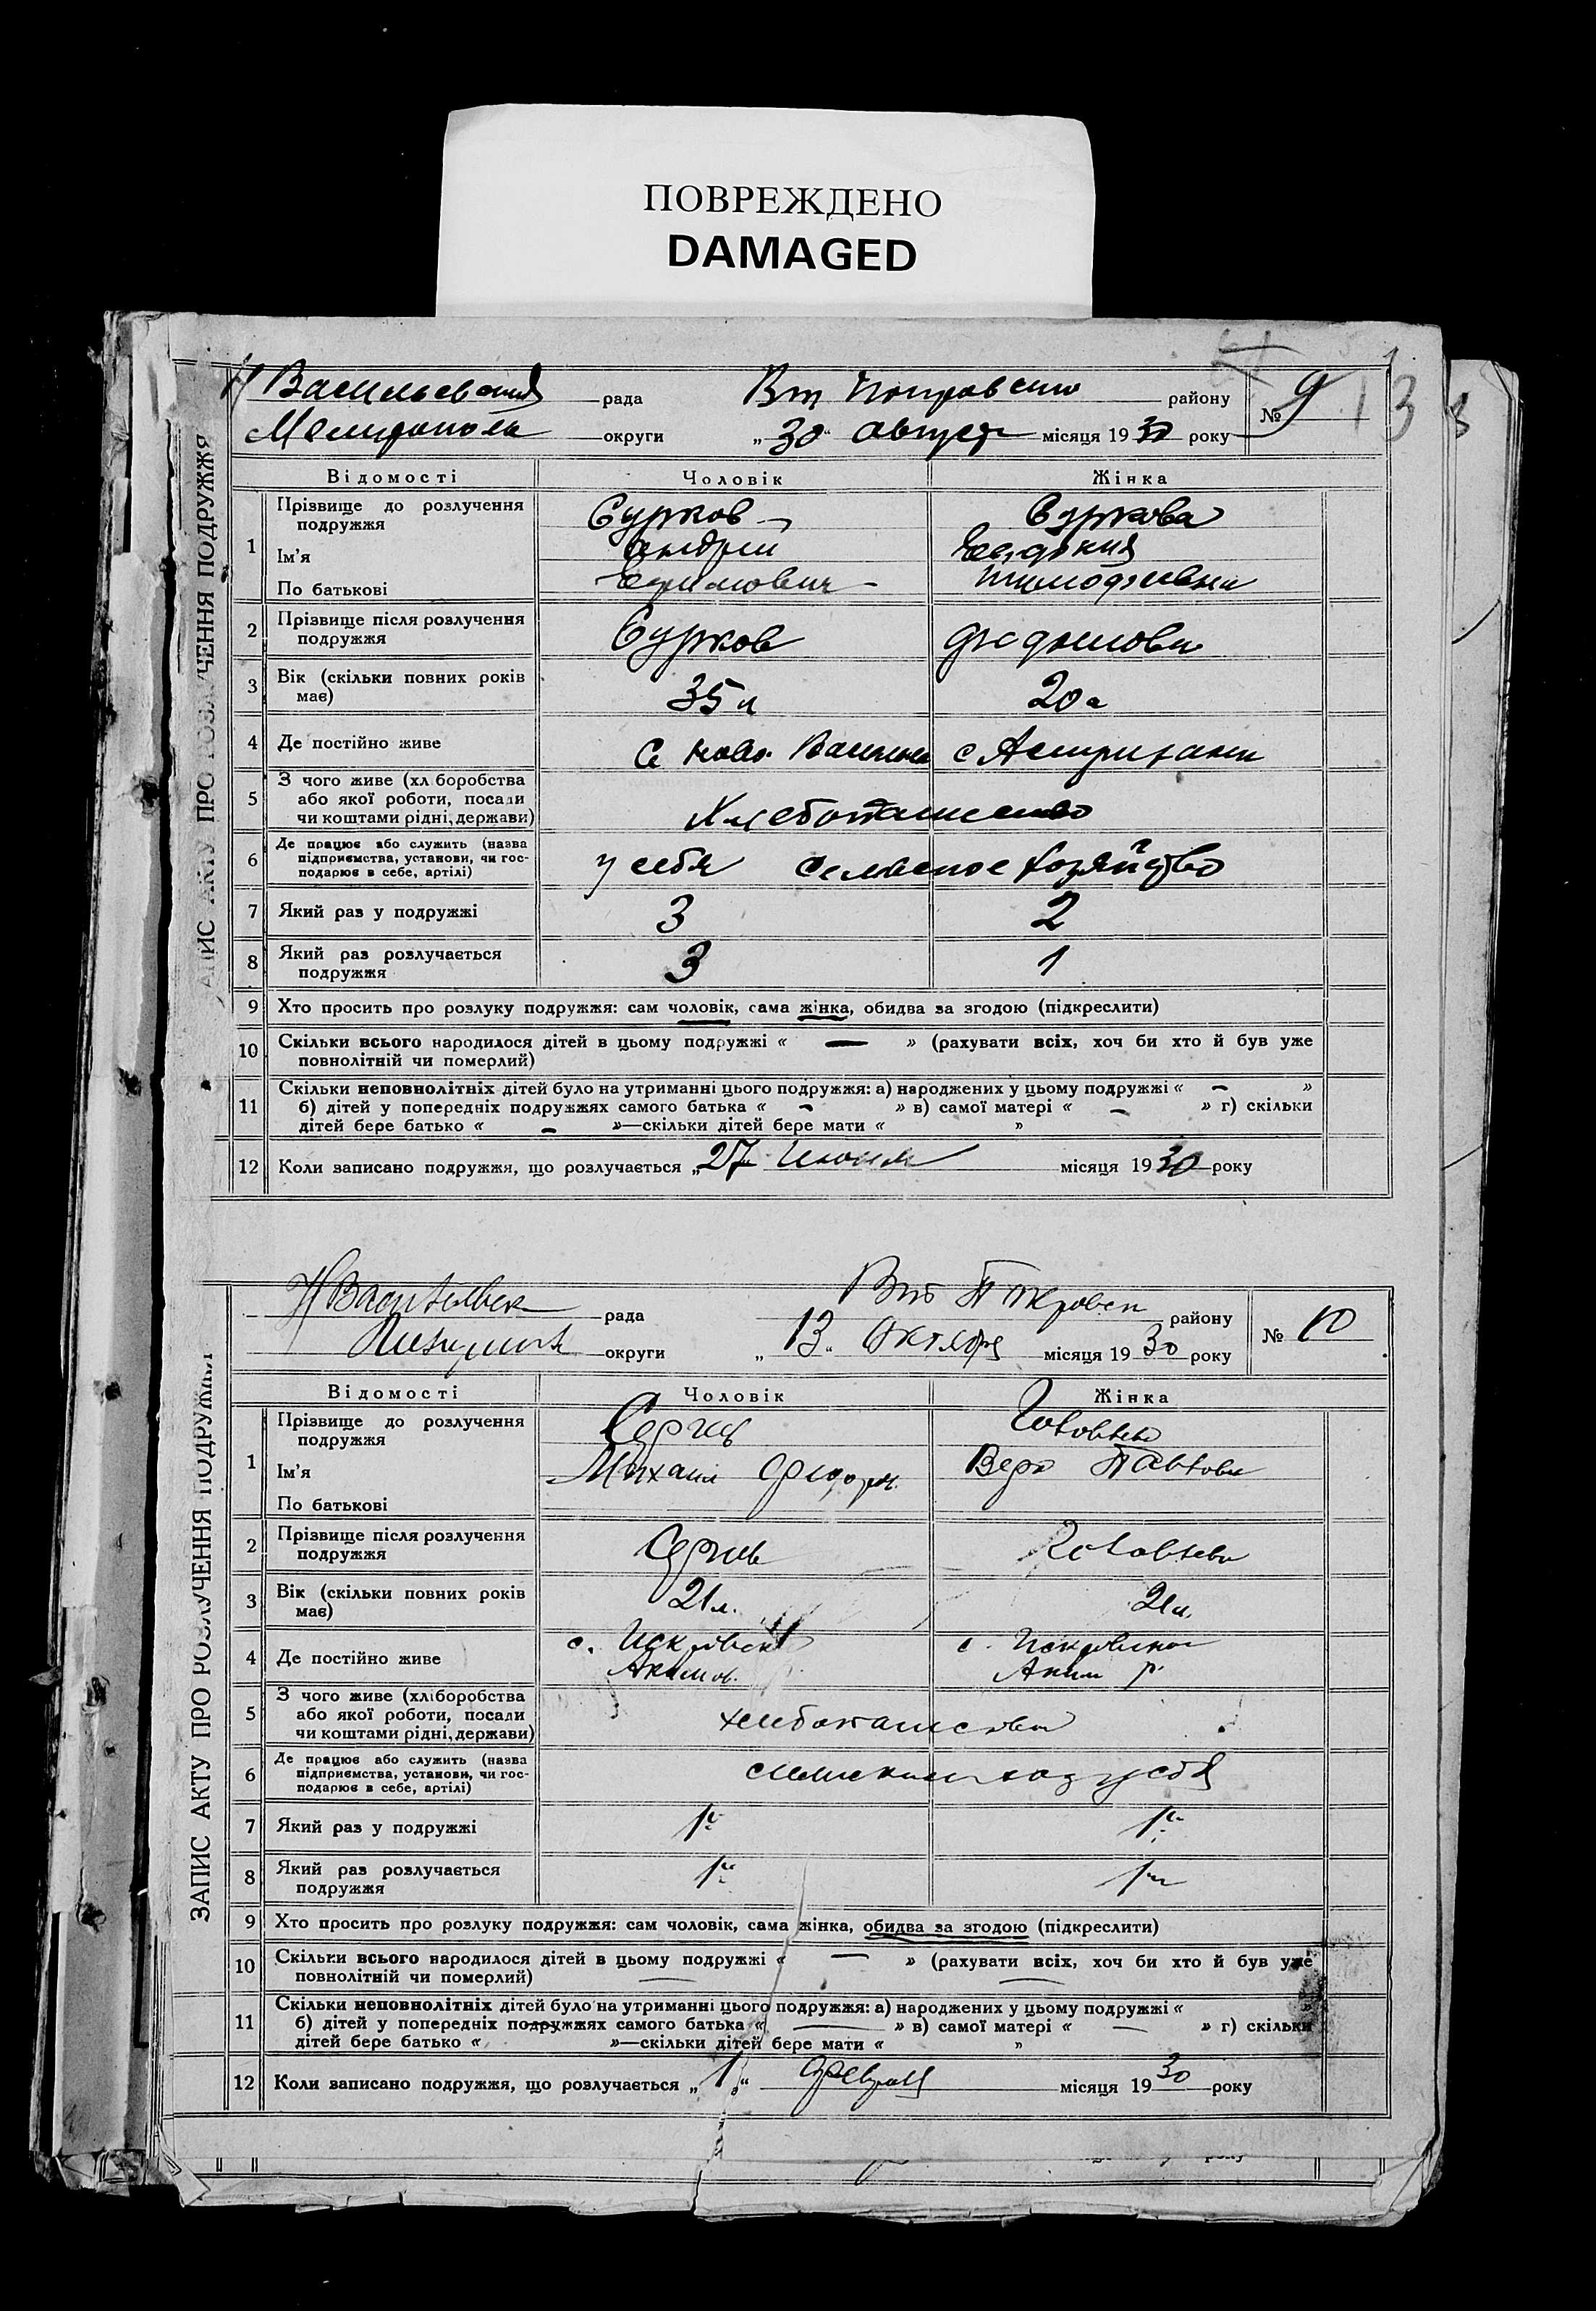 ПОВРЕЖДЕНО
DAMAGED
13
ЗАПИС АКТУ ПРО РОЗЛУЧЕННЯ ПОДРУЖЖЯ
Н Васильевская рада Вт Покровского району № 9
Мелитополь округи „30“ август місяця 1930 року
Відомості Чоловік Жінка
1 Прізвище до розлучення подружжя Сурков Суркова
Ім'я Андрей Евдокия
По батькові Ефимович Тимофеевна
2 Прізвище після розлучення
подружжя Сурков
3 Вік (скільки повних років
має) 35 л 20 л
4 Де постійно живе С Ново с Астраханка
5 З чого живе (хліборобства
або якої роботи, посади
чи коштами рідні, держави) Хлебопашество
6 Де працює або служить (назва
підприємства, установи, чи гос-
подарює в себе, артілі) у себя сельское хозяйство
7 Який раз у подружжі 3 2
8 Який раз розлучається
подружжя 3 1
9 Хто просить про розлуку подружжя: сам чоловік, сама жінка, обидва за згодою (підкреслити)
10 Скільки всього народилося дітей в цьому подружжі « — » (рахувати всіх, хоч би хто й був уже
повнолітній чи померлий)
11 Скільки неповнолітніх дітей було на утриманні цього подружжя: а) народжених у цьому подружжі « – »
б) дітей у попередніх подружжях самого батька « – » в) самої матері « – » г) скільки
дітей бере батько « – »—скільки дітей бере мати « »
12 Коли записано подружжя, що розлучається „27“ місяця 1930 року
ЗАПИС АКТУ ПРО РОЗЛУЧЕННЯ ПОДРУЖЖЯ
Н Васильевск рада Вто Покровск району № 10
округи „13“ Октября місяця 1930 року
Відомості Чоловік Жінка
1 Прізвище до розлучення
подружжя
Ім'я Михаил Федор. Вера Павлова
По батькові
2 Прізвище після розлучення
подружжя
3 Вік (скільки повних років
має) 21 л. 21 л.
4 Де постійно живе с. с.
Акимов. Аким р.
5 З чого живе (хліборобства
або якої роботи, посади
чи коштами рідні, держави) хлебопашество
6 Де працює або служить (назва
підприємства, установи, чи гос-
подарює в себе, артілі) у себя
7 Який раз у подружжі 1й 1й
8 Який раз розлучається
подружжя 1й 1й
9 Хто просить про розлуку подружжя: сам чоловік, сама жінка, обидва за згодою (підкреслити)
10 Скільки всього народилося дітей в цьому подружжі « — » (рахувати всіх, хоч би хто й був уже
повнолітній чи померлий)
11 Скільки неповнолітніх дітей було на утриманні цього подружжя: а) народжених у цьому подружжі « »
б) дітей у попередніх подружжях самого батька « — » в) самої матері « — » г) скільки
дітей бере батько « »—скільки дітей бере мати « »
12 Коли записано подружжя, що розлучається „1“ февраля місяця 1930 року